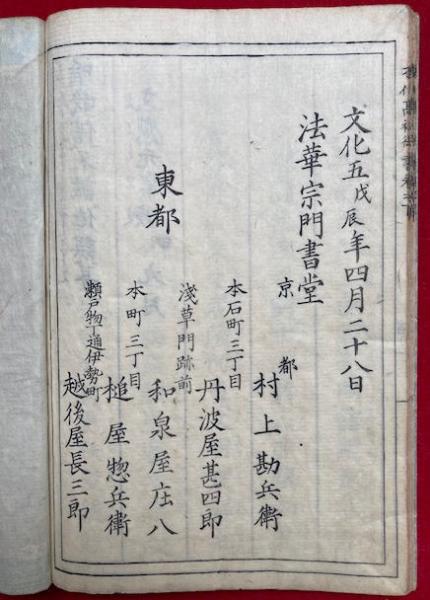 文化五戊辰年四月二十八日
法華宗門書堂
京都
村上勘兵衛
東都
本石町三丁目
丹波屋甚四郎
淺草門跡前
和泉屋庄八
本町三丁目
槌屋惣兵衛
瀬戸物丁通伊勢町
越後屋長三郎